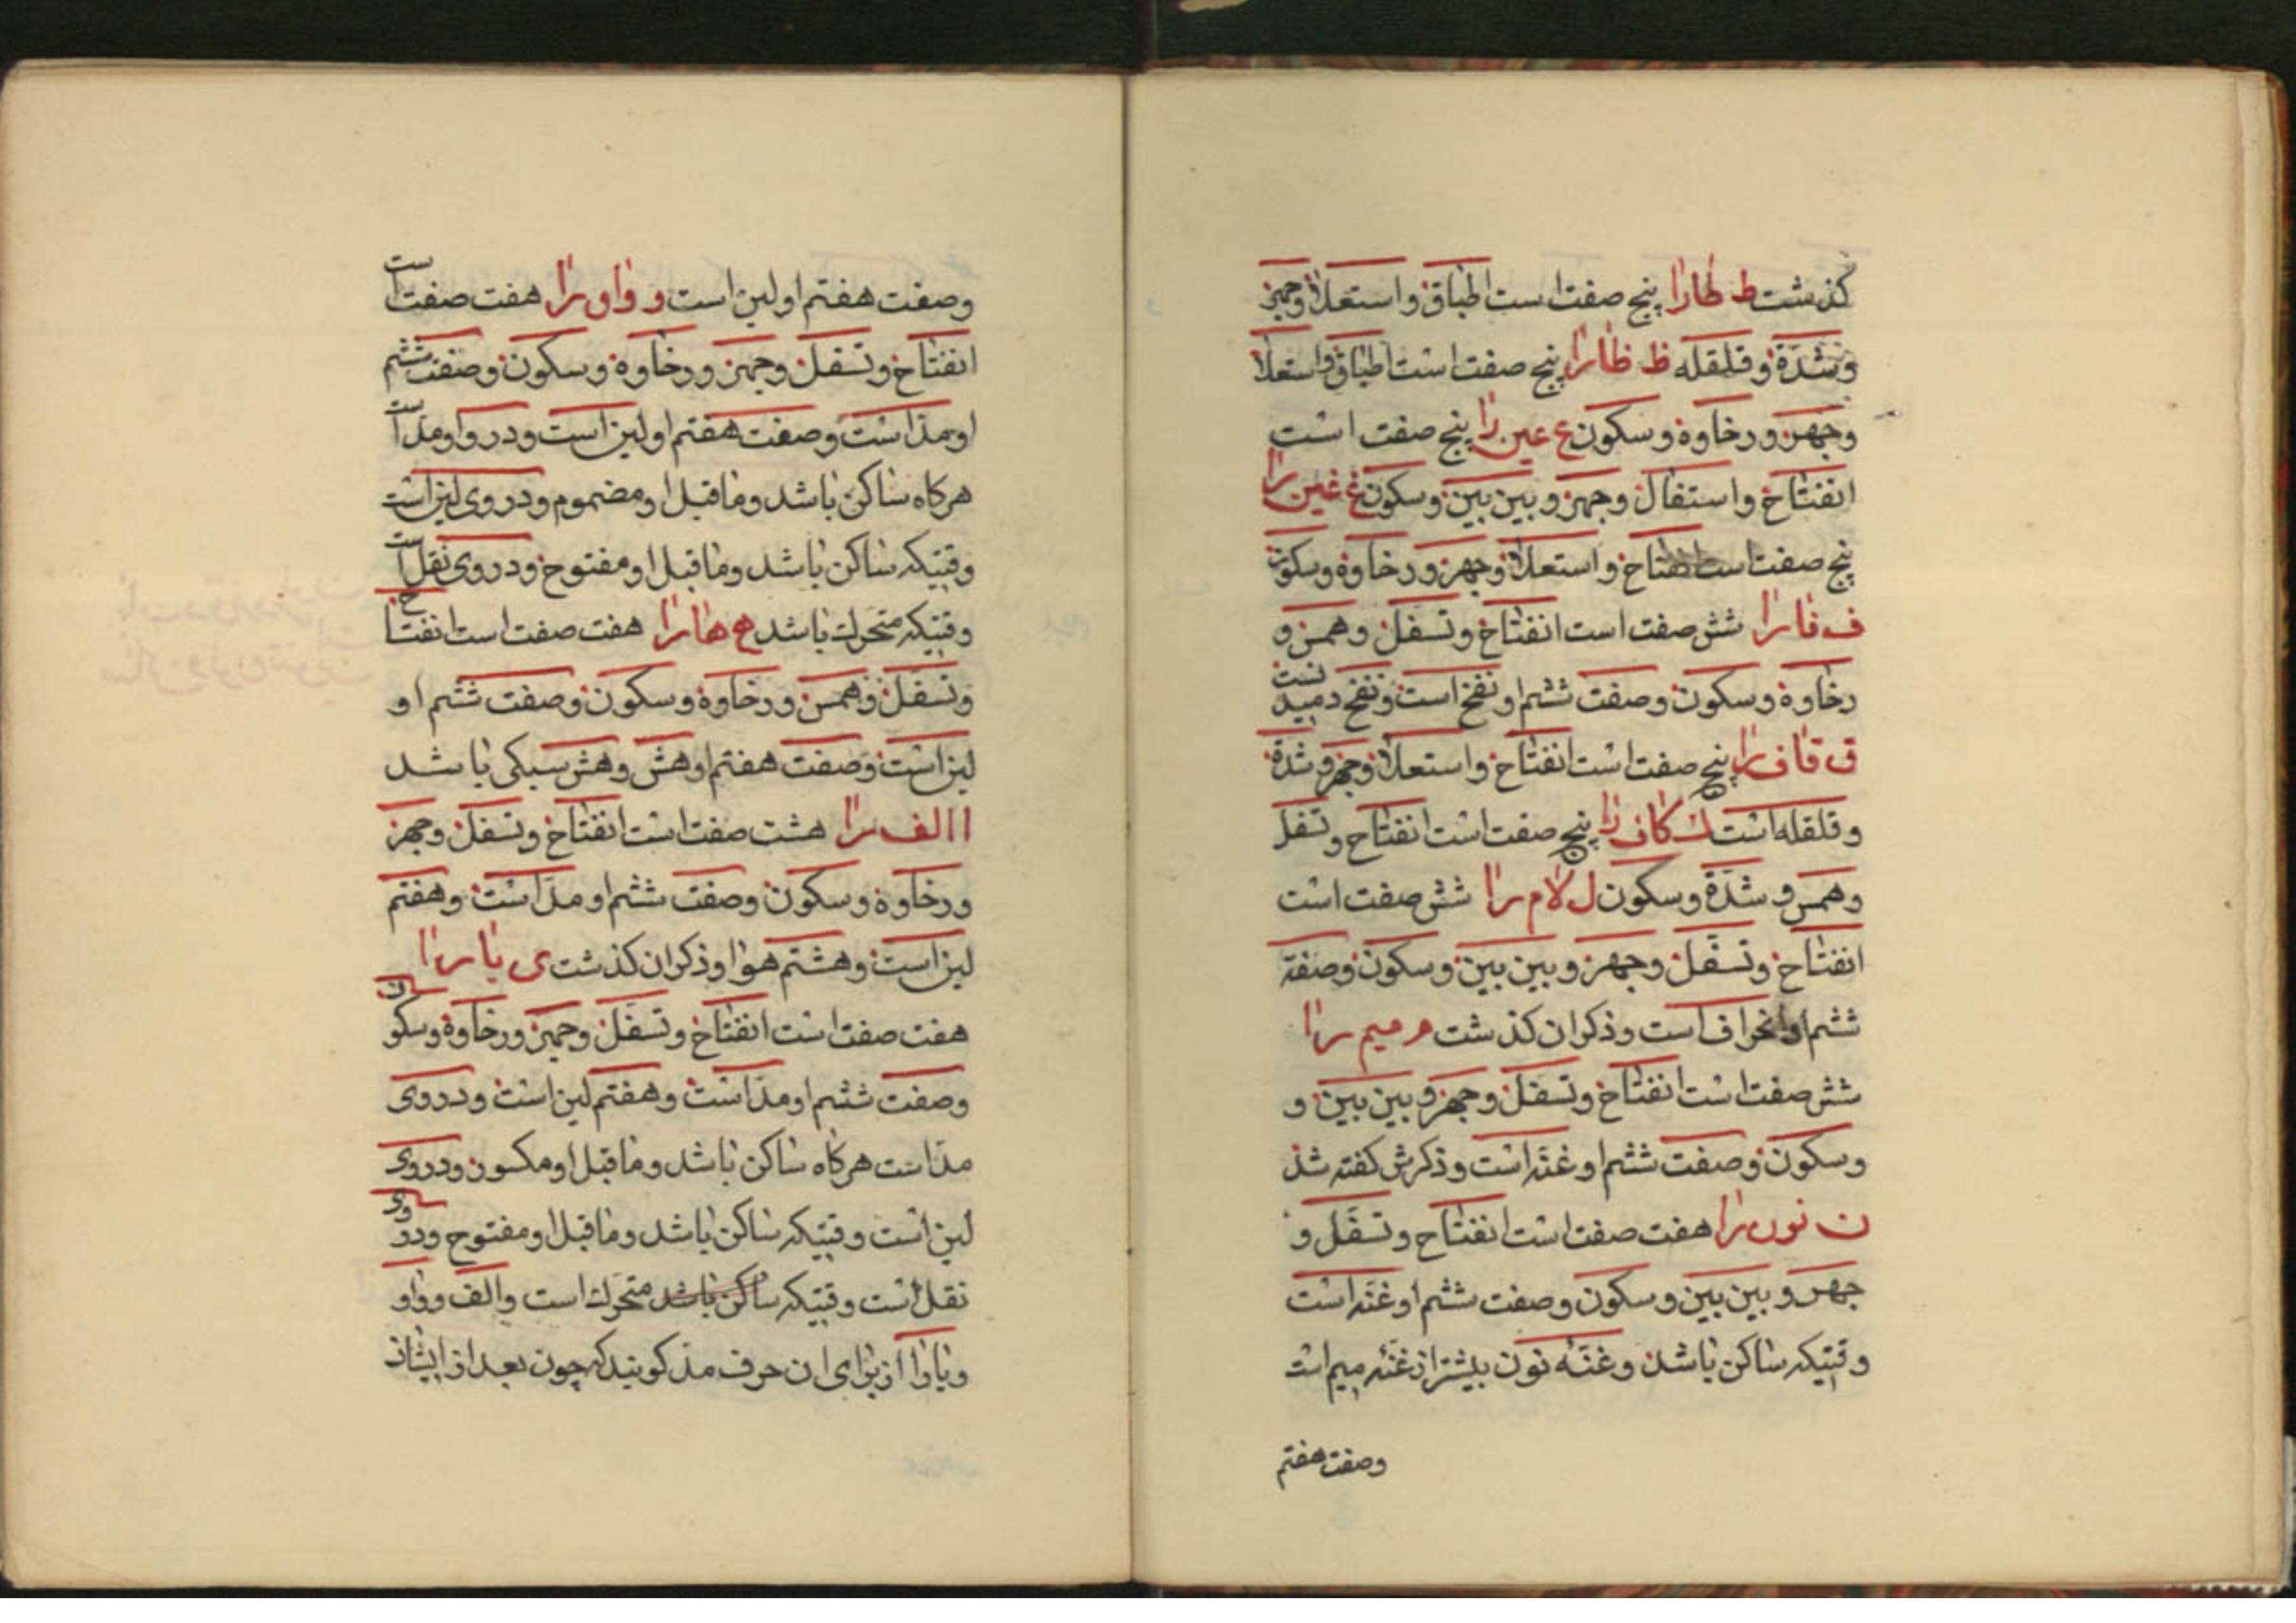 گذشت ط طا را پنج صفت است اطباق و استعلا و جهر
و شدّة و قلقله ظ ظا را پنج صفت است اطباق و استعلا
و جهر و رخاوة و سکون ع عین را پنج صفت است
انفتاح و استفال و جهر و بین بین و سکون غ غین را
پنج صفت است انفتاح و استعلا و جهر و رخاوة و سکون
ف فا را شش صفت است انفتاح و تسفل و همس و
رخاوة و سکون و صفت ششم او نفخ است و نفخ دمیدنست
ق قاف را پنج صفت است انفتاح و استعلا و جهر و شدّة
و قلقله است ک کاف را پنج صفت است انفتاح و تسفل
و همس و شدّة و سکون ل لام را شش صفت است
انفتاح و تسفّل و جهر و بین بین و سکون و صفة
ششم او انحراف است و ذکر ان کذشت م میم را
شش صفت است انفتاح و تسفل و جهر و بین بین و
و سکون و صفت ششم او غنّه است و ذکرش کفته شد
ن نون را هفت صفت است انفتاح و تسفّل و
جهر و بین بین و سکون و صفت ششم او غنّه است
وقتیکه ساکن باشد و غنّه نون بیشتر از غنّه میم است
وصفت هفتم
وصفت هفتم او لین است و واو را هفت صفت است
انفتاح و تسفل و جهر و رخاوة و سکون و صفت ششم
او مدّ است و صفت هفتم او لین است و در واو مد است
هرکاه ساکن باشد و ماقبل او مضموم و در وی لین است
وقتیکه ساکن باشد و ماقبل او مفتوح و در وی نقل است
وقتیکه متحرک باشد ه ها را هفت صفت است انفتاح
و تسفل و همس و رخاوة و سکون و صفت ششم او
لین است و صفت هفتم او هش و هش سبکی باشد
ا الف را هشت صفت است انفتاح و تسفل و جهر
و رخاوة و سکون و صفت ششم او مدّ است و هفتم
لین است و هشتم هوا و ذکر ان کذشت ی یا را
هفت صفت است انفتاح و تسفّل و جهر و رخاوة و سکون
و صفت ششم او مدّ است و هفتم لین است و در وی
مدّ است هرکاه ساکن باشد و ماقبل او مکسور و در وی
لین است وقتیکه ساکن باشد و ماقبل او مفتوح و در وی
نقل است وقتیکه ساکن باشد متحرک است و الف و واو
و یا را از برای ان حرف مدّ کویند که چون بعد از ایشان